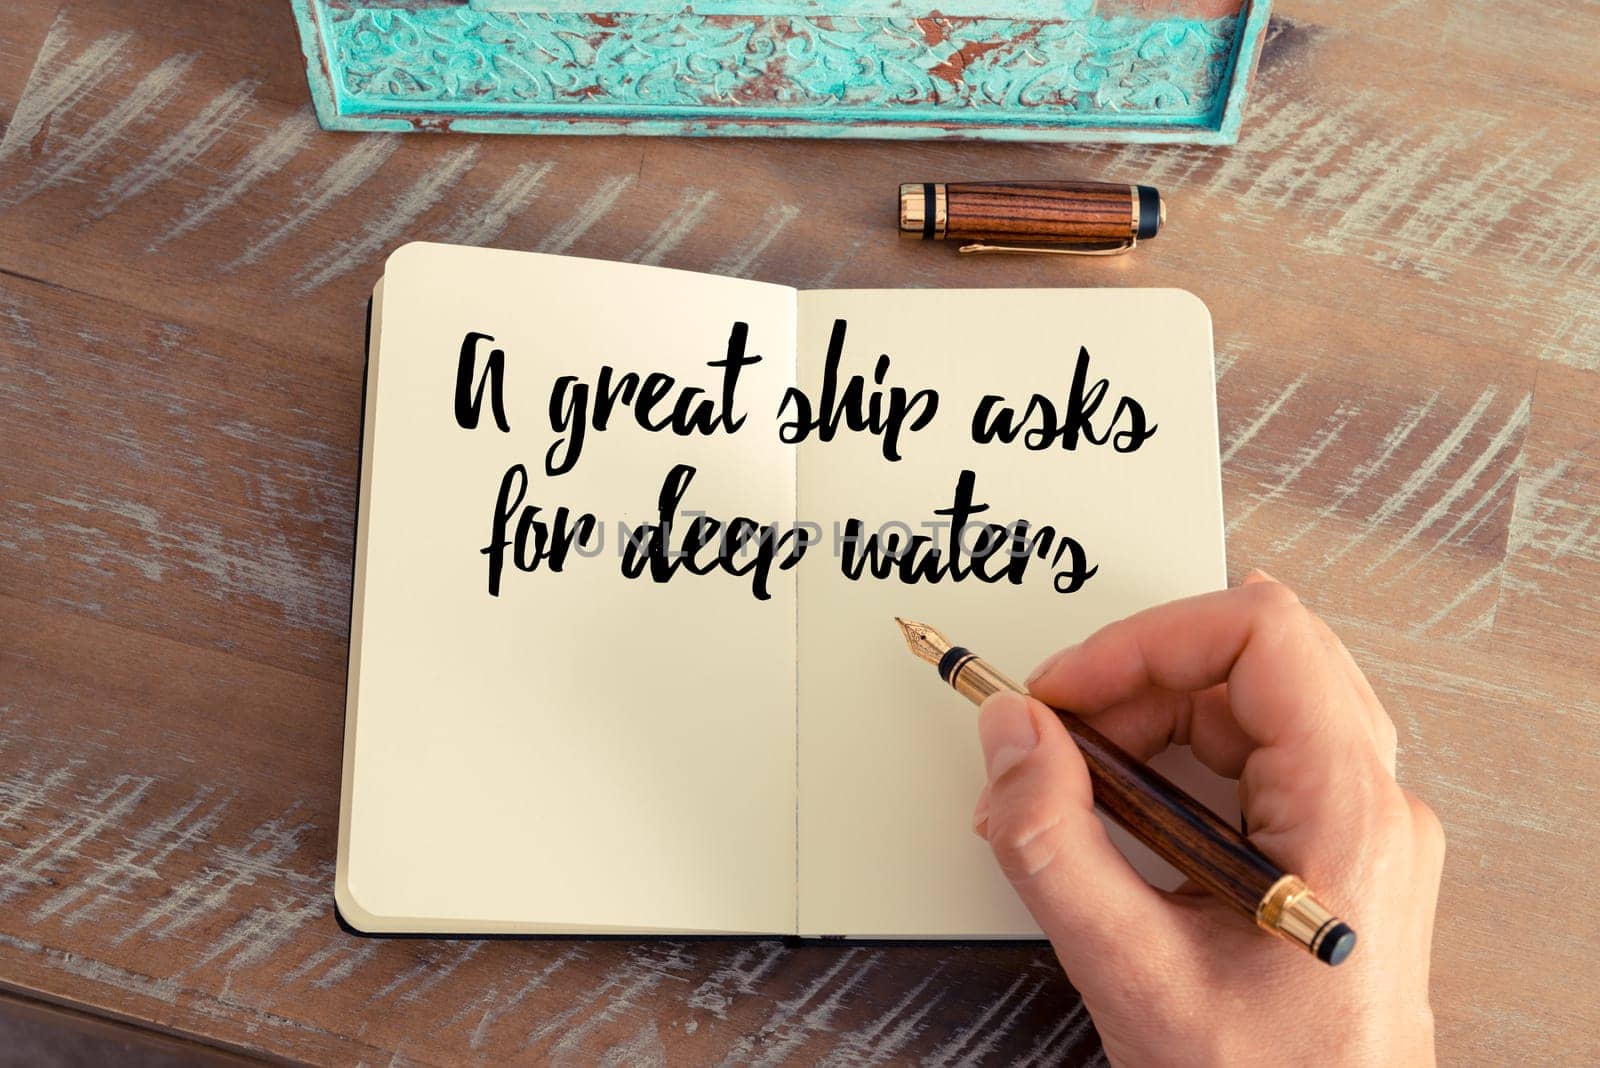 A great ship asks
for deep waters
UNLIMPHOTOS